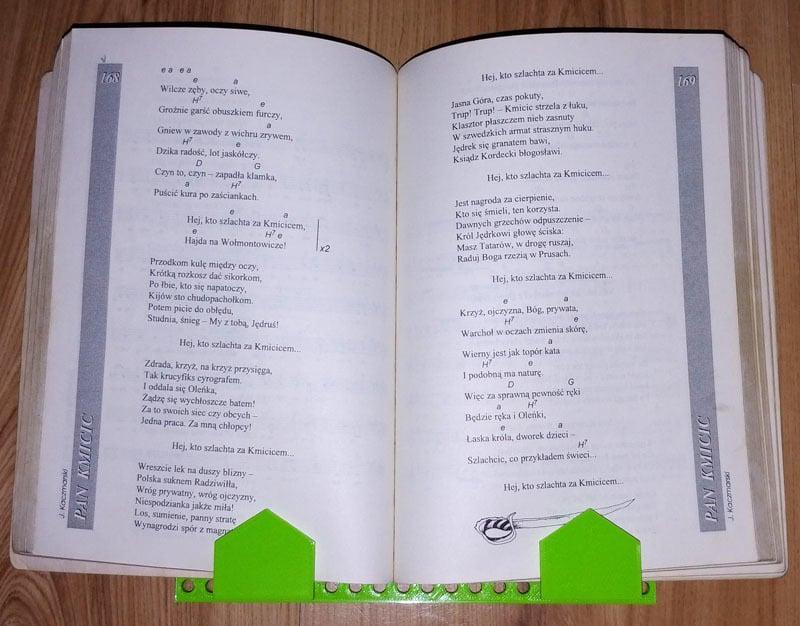 168
e a e a
e a
Wilcze zęby, oczy siwe,
H7 e
Groźnie garść obuszkiem furczy,
a
Gniew w zawody z wichru zrywem,
H7 e
Dzika radość, lot jaskółczy.
D G
Czyn to, czyn – zapadła klamka,
a H7
Puścić kura po zaściankach.
e a
Hej, kto szlachta za Kmicicem,
e H7 e
Hajda na Wołmontowicze!
x2
Przodkom kulę między oczy,
Krótką rozkosz dać sikorkom,
Po łbie, kto się napatoczy,
Kijów sto chudopachołkom.
Potem picie do obłędu,
Studnia, śnieg – My z tobą, Jędruś!
Hej, kto szlachta za Kmicicem...
Zdrada, krzyż, na krzyż przysięga,
Tak krucyfiks cyrografem.
I oddala się Oleńka,
Żądzę się wychłoszcze batem!
Za to swoich siec czy obcych –
Jedna praca. Za mną chłopcy!
Hej, kto szlachta za Kmicicem...
Wreszcie lek na duszy blizny –
Polska suknem Radziwiłła,
Wróg prywatny, wróg ojczyzny,
Niespodzianka jakże miła!
Los, sumienie, panny stratę
Wynagrodzi spór z
PAN KMICIC
J. Kaczmarski
169
Hej, kto szlachta za Kmicicem...
Jasna Góra, czas pokuty,
Trup! Trup! – Kmicic strzela z łuku,
Klasztor płaszczem nieb zasnuty
W szwedzkich armat strasznym huku.
Jędrek się granatem bawi,
Ksiądz Kordecki błogosławi.
Hej, kto szlachta za Kmicicem...
Jest nagroda za cierpienie,
Kto się śmieli, ten korzysta.
Dawnych grzechów odpuszczenie –
Król Jędrkowi głowę ściska:
Masz Tatarów, w drogę ruszaj,
Raduj Boga rzezią w Prusach.
Hej, kto szlachta za Kmicicem...
e a
Krzyż, ojczyzna, Bóg, prywata,
H7 e
Warchoł w oczach zmienia skórę,
a
Wierny jest jak topór kata
H7 e
I podobną ma naturę.
D G
Więc za sprawną pewność ręki
a H7
Będzie ręka i Oleńki,
e a
Łaska króla, dworek dzieci –
H7
Szlachcic, co przykładem świeci...
Hej, kto szlachta za Kmicicem...
PAN KMICIC
J. Kaczmarski